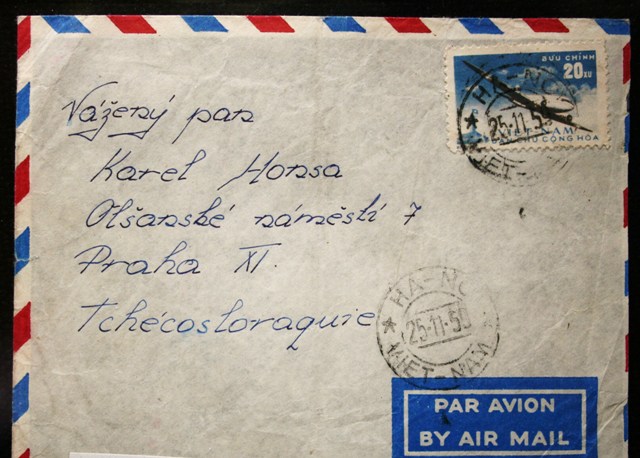 BƯU CHÍNH
20 XU
VIỆT-NAM
DÂN CHỦ CỘNG HÒA
HA-NOI
25-11-59
VIET-NAM
Vážený pan
Karel Honsa
Olšanské náměstí 7
Praha XI.
Tchécoslovaquie
HA-NOI
25-11-59
VIET-NAM
PAR AVION
BY AIR MAIL